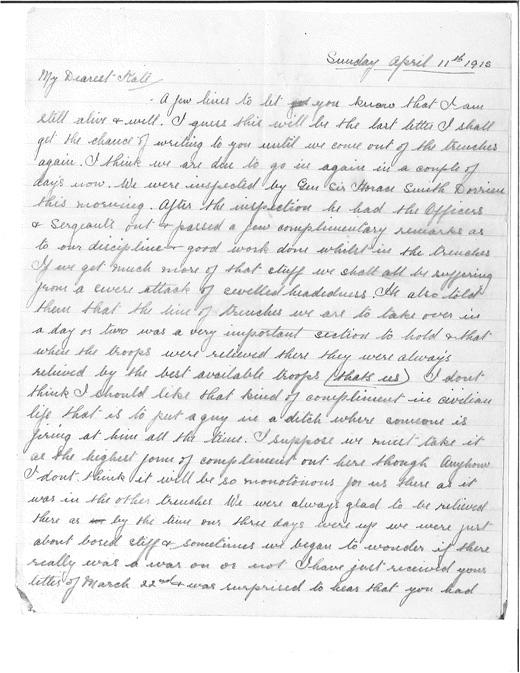 Sunday April 11th 1915
My Dearest Kate
- A few lines to let you know that I am
still alive & well. I guess this will be the last letter I shall
get the chance of writing to you until we come out of the trenches
again. I think we are due to go in again in a couple of
days now. We were inspected by Gen Sir Horace Smith Dorrien
this morning. After the inspection he had the Officers
& Sergeants out & passed a few complimentary remarks as
to our discipline & good work done whilst in the trenches
If we get much more of that stuff we shall all be suffering
from a severe attack of swelled headedness. He also told
them that the line of trenches we are to take over in
a day or two was a very important section to hold & that
when the troops were relieved there they were always
relieved by the best available troops (thats us) I dont
think I should like that kind of compliment in civilian
life that is to put a guy in a ditch where someone is
firing at him all the time. I suppose we must take it
as the highest form of compliment out here though Anyhow
I dont think it will be so monotonous for us there as it
was in the other trenches We were always glad to be relieved
there as by the time our three days were up we were just
about bored stiff & sometimes we began to wonder if there
really was a war on or not I have just received your
letter of March 22nd & was surprised to hear that you had